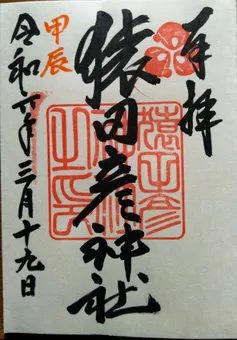 奉拝
猿田彦神社
甲辰
令和六年三月十九日
猿田彦神社之印